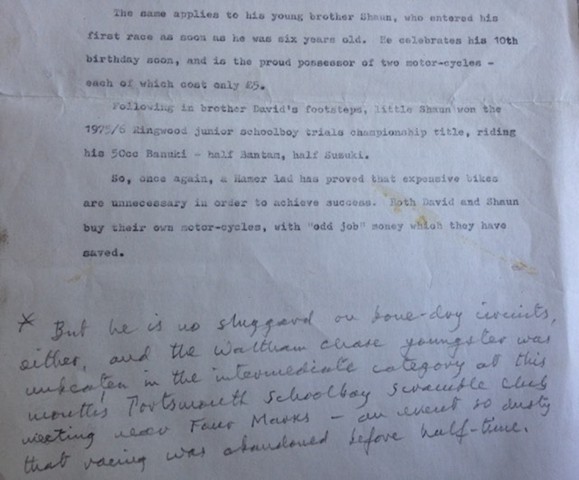 The same applies to his young brother Shaun, who entered his
first race as soon as he was six years old. He celebrates his 10th
birthday soon, and is the proud possessor of two motor-cycles -
each of which cost only £5.
Following in brother David's footsteps, little Shaun won the
1975/6 Ringwood junior schoolboy trials championship title, riding
his 50cc Banuki - half Bantam, half Suzuki.
So, once again, a Hamer lad has proved that expensive bikes
are unnecessary in order to achieve success. Both David and Shaun
buy their own motor-cycles, with "odd job" money which they have
saved.
* But he is no sluggard on bone-dry circuits,
either, and the Waltham Chase youngster was
unbeaten in the intermediate category at this
month's Portsmouth Schoolboy Scramble Club
meeting near Four Marks - an event so dusty
that racing was abandoned before half-time.